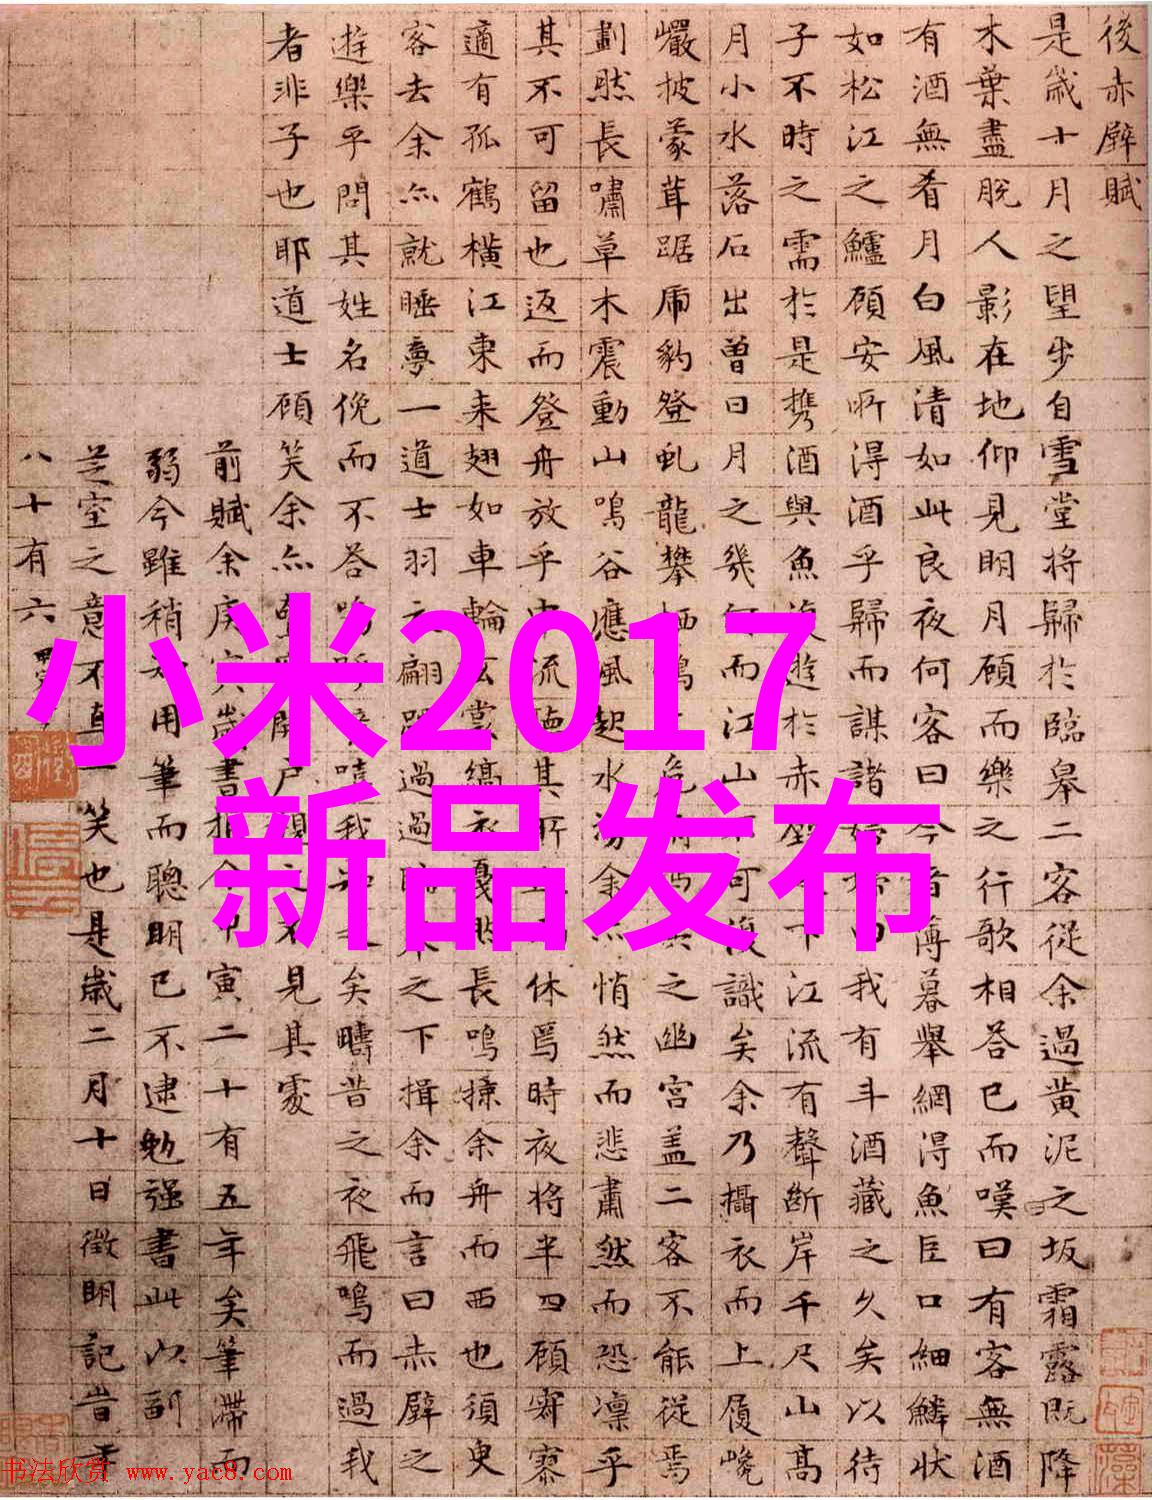 後赤壁賦
是歲十月之望步自雪堂将歸於臨皋二客從余過黄泥之坂霜露既降
木葉盡脫人影在地仰見明月顧而樂之行歌相答已而嘆曰有客無酒
有酒無肴月白風清如此良夜何客曰今者薄暮舉網得魚巨口細鱗状
如松江之鱸顧安所得酒乎歸而謀諸婦曰我有斗酒藏之久矣以待
子不時之需於是携酒與魚復遊於赤壁下江流有聲斷岸千尺山高
月小水落石出曾日月之幾何而江山可復識矣余乃攝衣而上履巉
巖披蒙茸踞虎豹登虬龍攀栖鶻危之幽宮盖二客不能從焉
劃然長嘯草木震動山鳴谷應風起水湧余悄然而悲肅然而恐凛乎
其不可留也返而登舟放乎中流其所止休焉時夜将半四顧寂寥
適有孤鶴橫江東来翅如車輪玄裳縞衣戛然長鳴掠余舟而西也須臾
客去余亦就睡夢一道士羽衣翩躚過臨之下揖余而言曰赤壁之
遊樂乎問其姓名俛而不答嗚呼噫嘻我知之矣疇昔之夜飛鳴而過我
者非子也耶道士顧笑余亦開户視之不見其處
前賦余庚寅歲書抵今甲寅二十有五年矣筆滞而
弱今雖稍知用筆而聰明已不逮勉强書此以副
芝室之意不直一笑也是歲二月十日徵明記時年
八十有六
小米2017
新品发布
书法欣赏 www.yac8.com